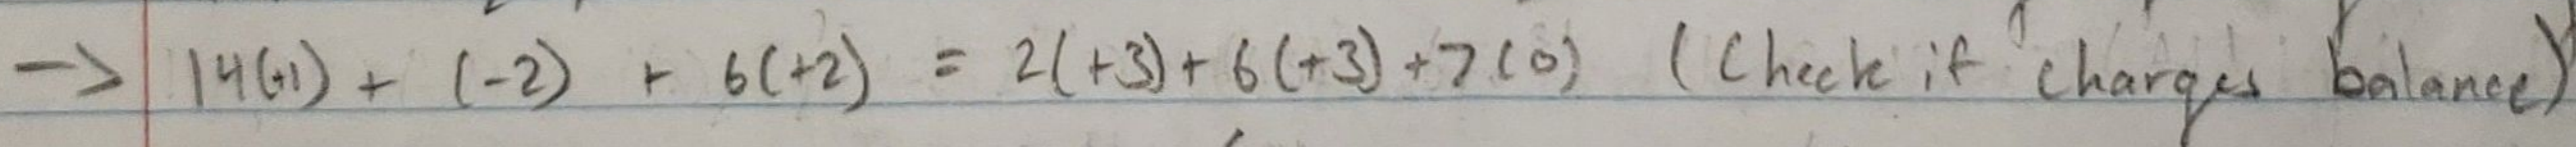 → 14(+1) + (-2) + 6(+2) = 2(+3) + 6(+3) + 7(0) (Check if charges balance)